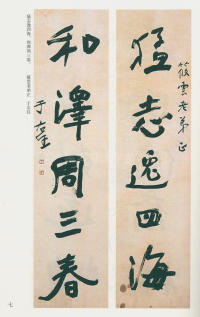 猛志逸四海
筱雲老弟正
和澤周三春
于右任
七